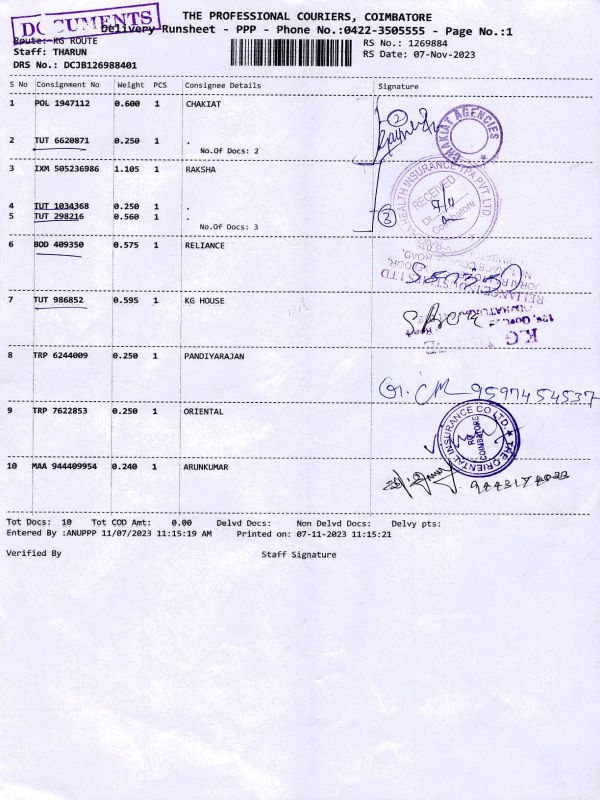 DOCUMENTS
THE PROFESSIONAL COURIERS, COIMBATORE
Delivery Runsheet - PPP - Phone No.:0422-3505555 - Page No.:1
Route: KG ROUTE
RS No.: 1269884
Staff: THARUN
RS Date: 07-Nov-2023
DRS No.: DCJB126988401
S No Consignment No Weight PCS Consignee Details Signature
1 POL 1947112 0.600 1 CHAKIAT
2
CHAKIAT AGENCIES
2 TUT 6620871 0.250 1 .
No.Of Docs: 2
3 IXM 505236986 1.105 1 RAKSHA
HEALTH INSURANCE TPA PVT. LTD
RECEIVED
Coimbatore
4 TUT 1034368 0.250 1 .
5 TUT 298216 0.560 1 .
3
No.Of Docs: 3
6 BOD 409350 0.575 1 RELIANCE
7 TUT 986852 0.595 1 KG HOUSE
K.G
8 TRP 6244009 0.250 1 PANDIYARAJAN
9597454537
9 TRP 7622853 0.250 1 ORIENTAL
THE ORIENTAL INSURANCE CO LTD.
COIMBATORE
10 MAA 944409954 0.240 1 ARUNKUMAR
Tot Docs: 10 Tot COD Amt: 0.00 Delvd Docs: Non Delvd Docs: Delvy pts:
Entered By :ANUPPP 11/07/2023 11:15:19 AM Printed on: 07-11-2023 11:15:21
Verified By Staff Signature